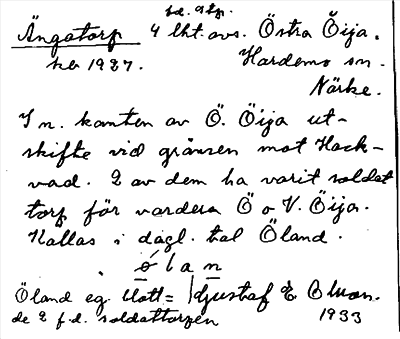 bd. o tp.
Ängatorp 4 lht. avs. Östra Öija.
ks 1927. Hardemo sn.
Närke.
I n. kanten av Ö. Öija ut-
skifte vid gränsen mot Hack-
vad. 2 av dem ha varit soldat
torp för vardera Ö o V. Öija.
Kallas i dagl. tal Öland.
ölan
Öland eg. blott = Gustaf E
de 2 f.d. soldattorpen 1933